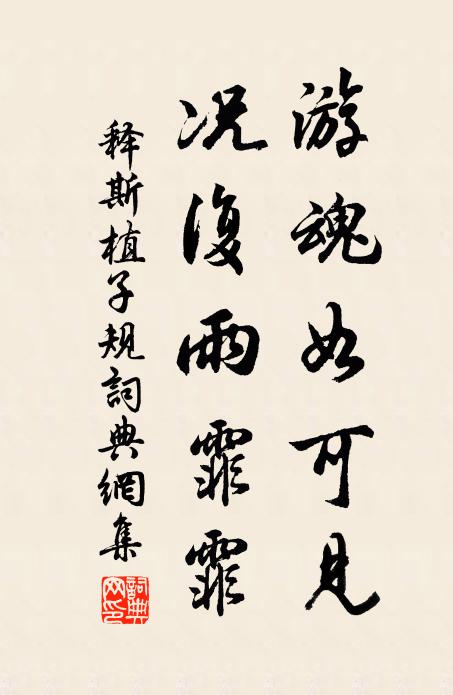 游魂如可見
况復雨霏霏
释斯植子規詞典網集
詞典网印